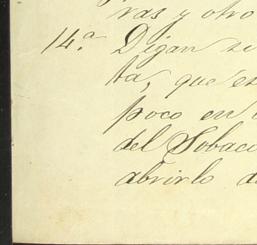 ras y otro
14.ª Digan si
ta, que es
poco en
del Sobaco
abrirlo de